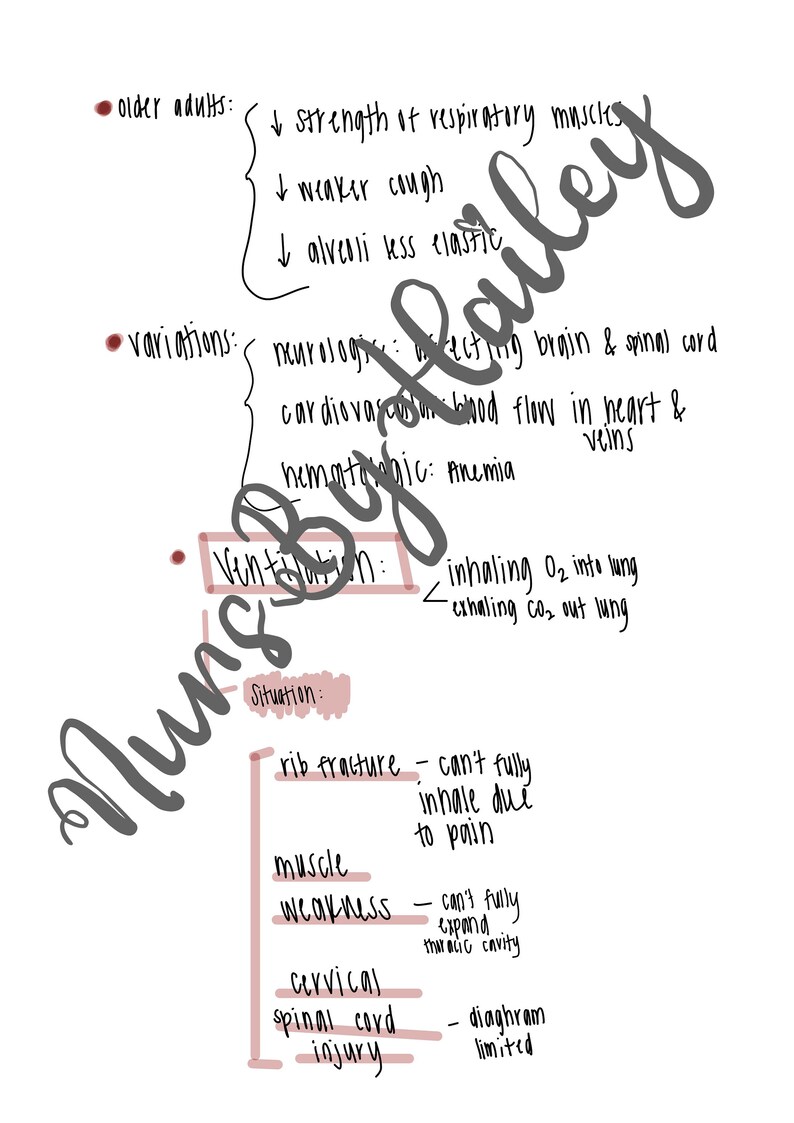 older adults:
↓ strength of respiratory muscles
↓ weaker cough
↓ alveoli less elastic
variations:
neurologic: affecting brain & spinal cord
cardiovascular: blood flow in heart &
veins
hematologic: Anemia
Ventilation:
inhaling O₂ into lung
exhaling CO₂ out lung
Situation:
rib fracture – can't fully
inhale due
to pain
muscle
weakness – can't fully
expand
thoracic cavity
cervical
spinal cord – diaghram
injury limited
Nurs By Hailey